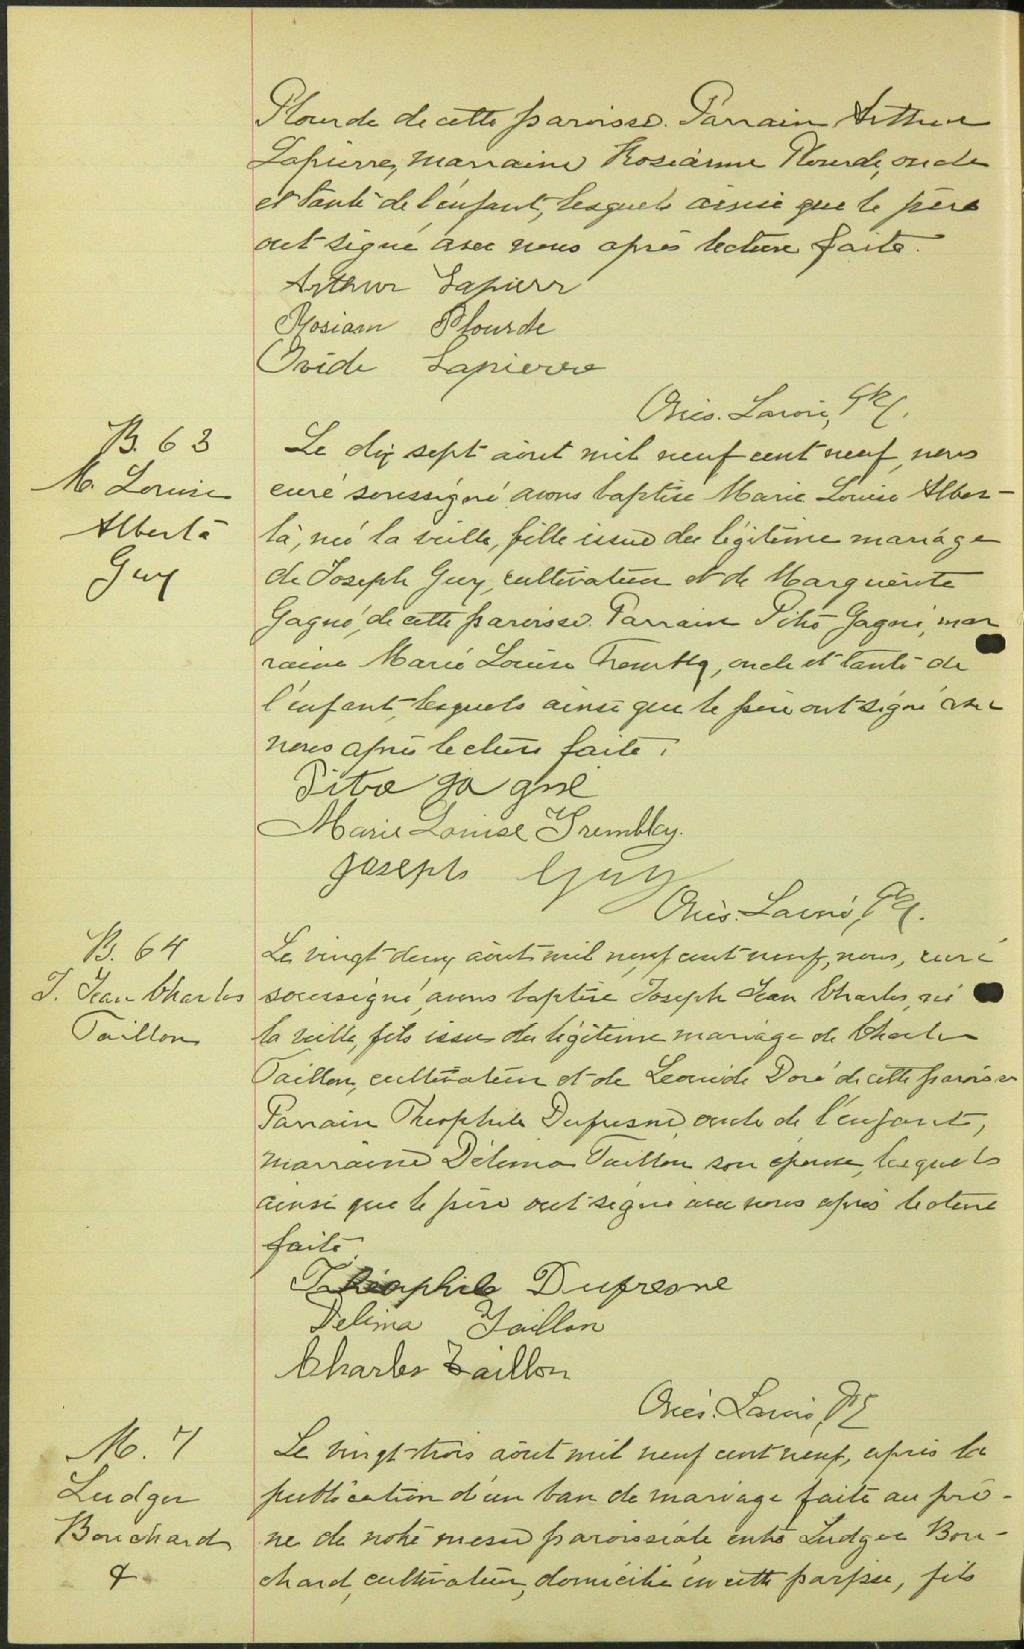 Plourde de cette paroisse. Parrain Arthur
Lapierre, marraine Roseanne Plourde, oncle
et tante de l'enfant, lesquels ainsi que le père
ont signé avec nous après lecture faite.
Arthur Lapierr
Rosiam Plourde
Ovide Lapierre
Onés. Lavoie, Ptre
B. 63
M. Louise
Alberta
Guy
Le dix sept août mil neuf cent neuf, nous
curé soussigné avons baptisé Marie Louise Alber-
ta, née la veille, fille issue du légitime mariage
de Joseph Guy, cultivateur et de Marguerite
Gagné, de cette paroisse. Parrain Pitre Gagné, mar
raine Marie Louise Tremblay, oncle et tante de
l'enfant, lesquels ainsi que le père ont signé avec
nous après lecture faite.
Pitre ga gné
Marie Louise Tremblay.
Joseph Guy
Onés. Lavoie, Ptre.
B. 64
J. Jean Charles
Taillon
Le vingt-deux août mil neuf cent neuf, nous, curé
soussigné, avons baptisé Joseph Jean Charles, né
la veille, fils issu du légitime mariage de Charles
Taillon, cultivateur et de Leonide Doré de cette paroisse
Parrain Théophile Dufresne, oncle de l'enfant,
marraine Délima Taillon son épouse, lesquels
ainsi que le père ont signé avec nous après lecture
faite.
Théophile Dufresne
Delima Taillon
Charles Taillon
Onés. Lavoie, Ptre
M. 7
Ludger
Bouchard
&
Le vingt-trois août mil neuf cent neuf, après la
publication d'un ban de mariage faite au prô-
ne de notre messe paroissiale entre Ludger Bou-
chard, cultivateur, domicilié en cette paroisse, fils